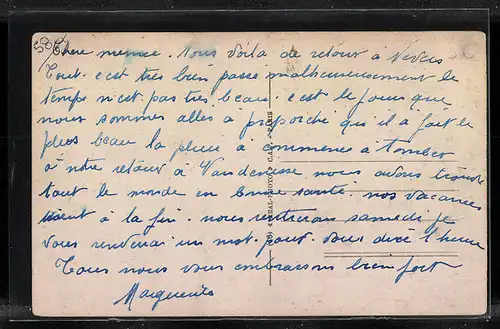 Chere memee. Nous voila de retour à Nevers
Tout c'est tres bien passe malheureusement le
temps n'est pas tres beau c'est le jour que
nous sommes alles a que il a fait le
plus beau la pluie a commence à tomber
à notre retour à Vandenesse nous avons trouve
tout le monde en bonne santé. nos vacances
à la fin. nous rentrerons samedi je
vous un mot pour vous dire l'heure
Tous nous vous embrassons bien fort
Marguerite